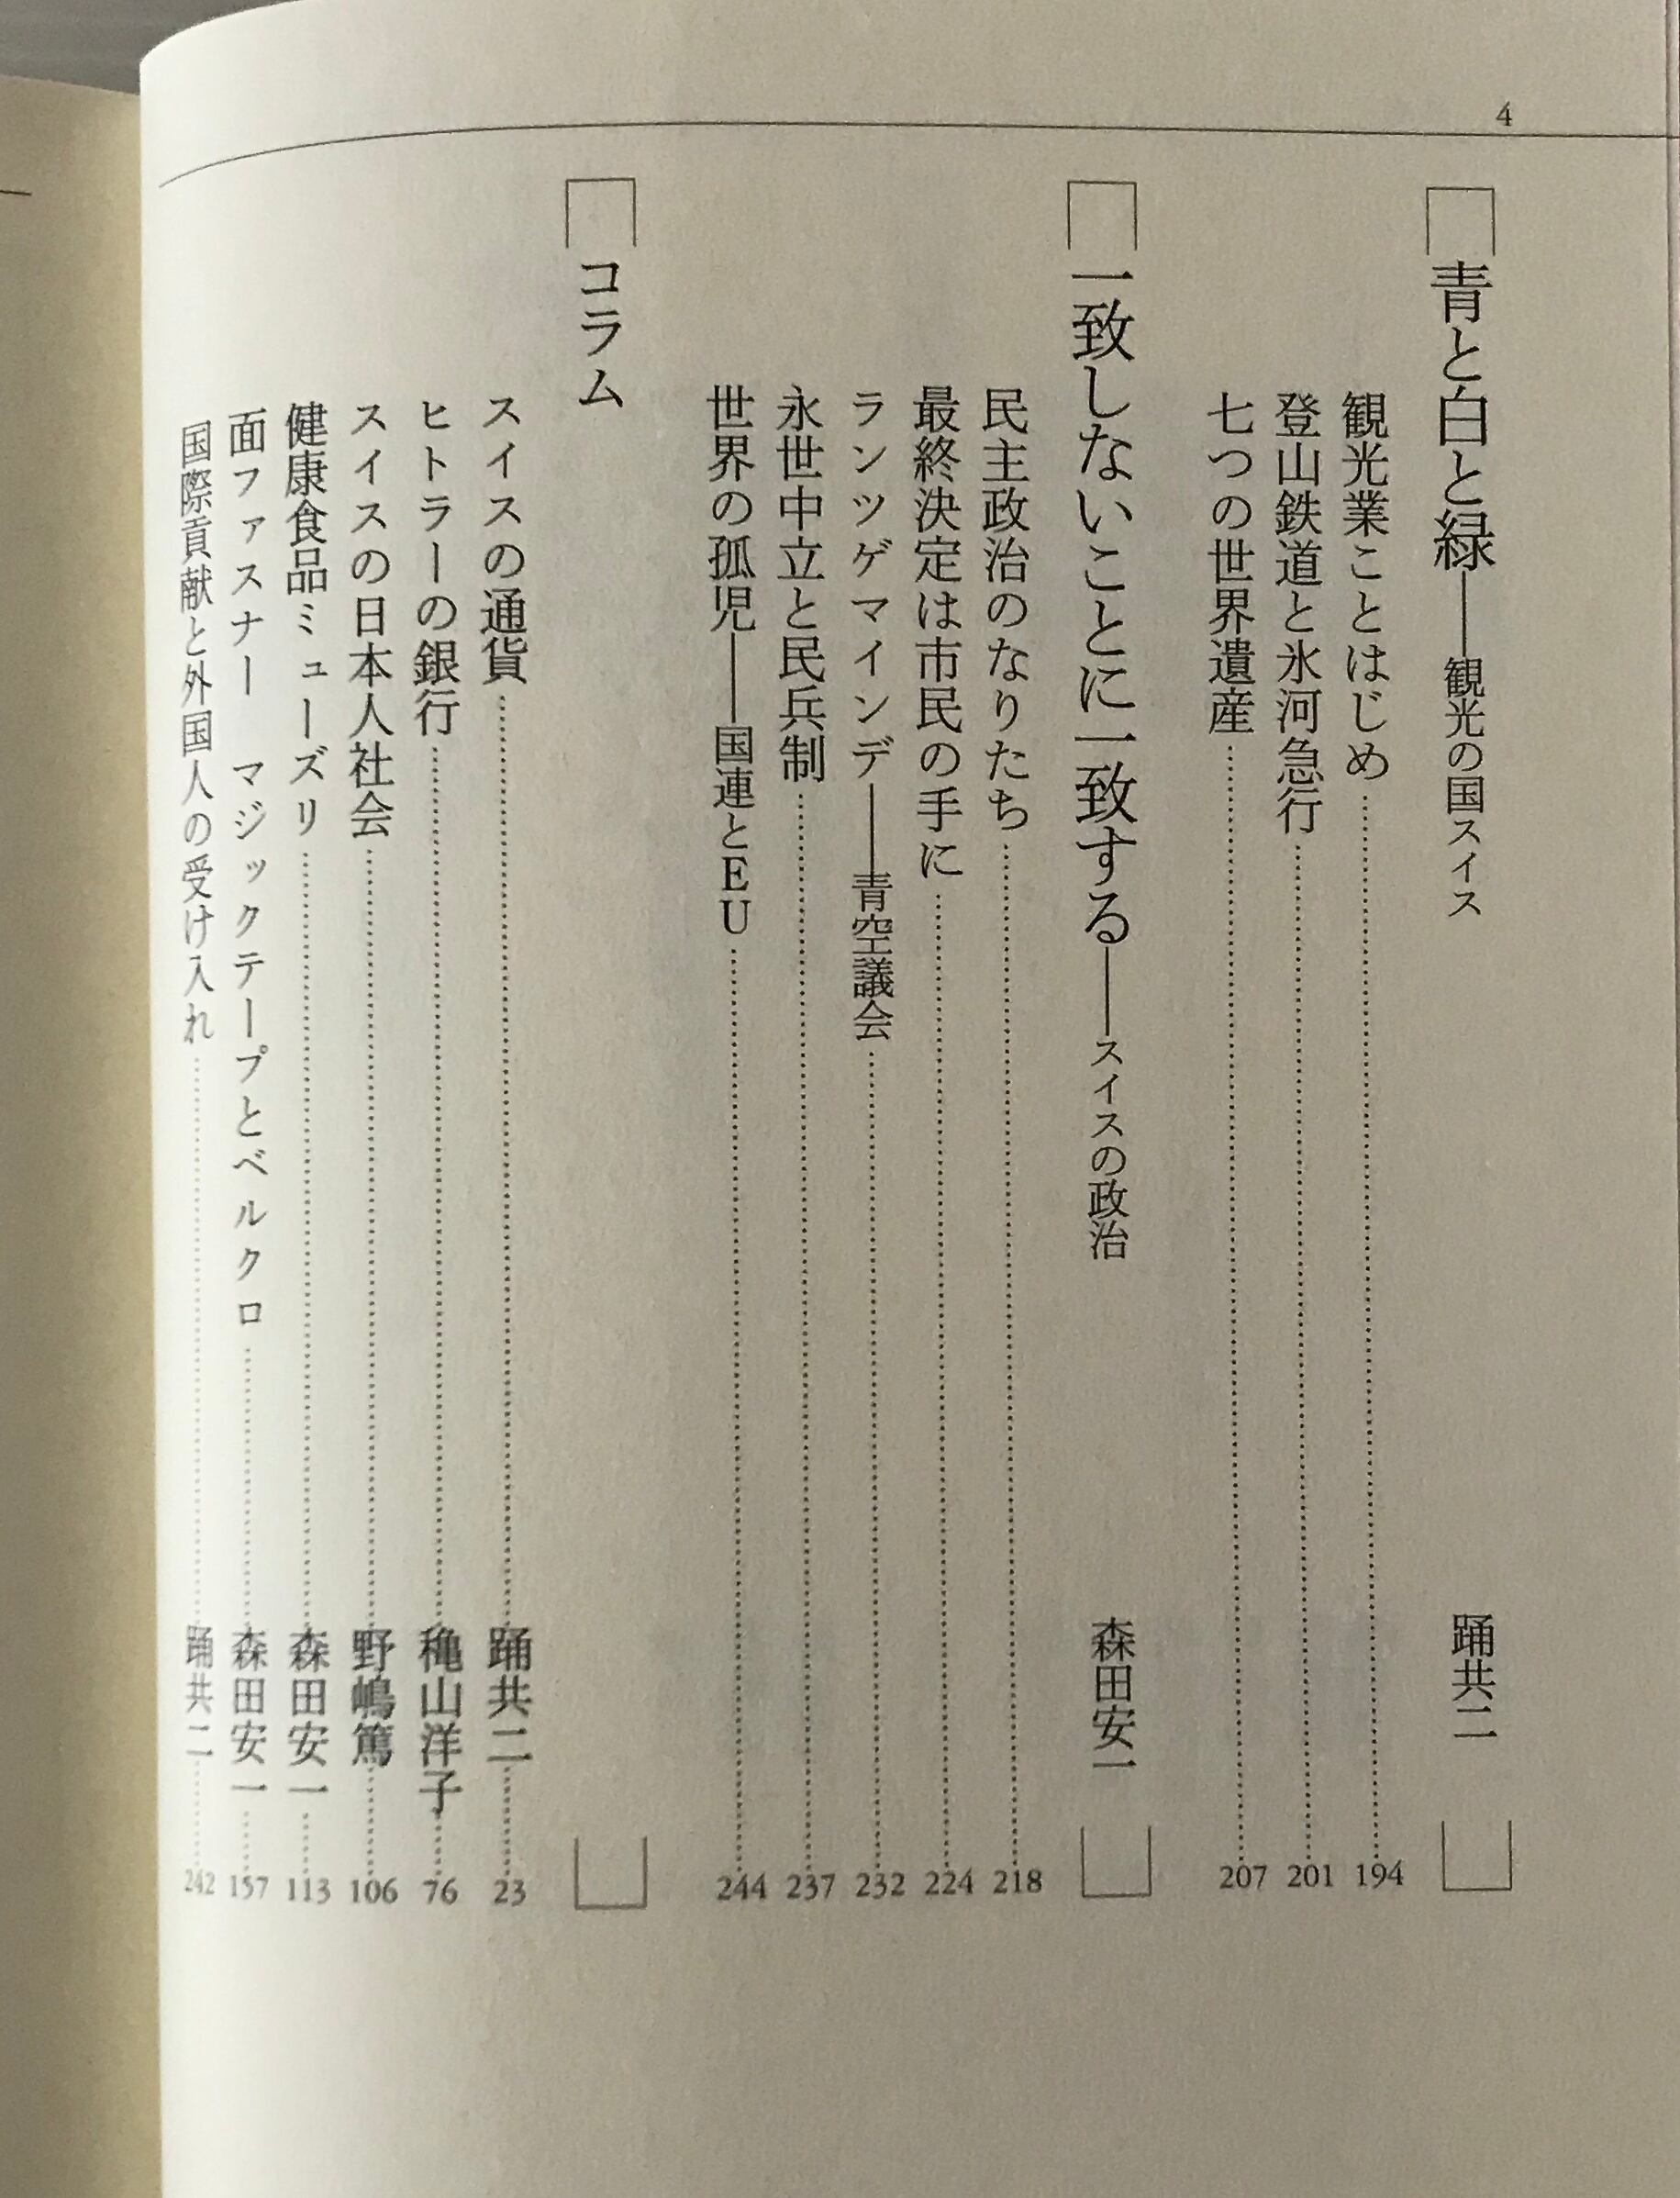 4
青と白と緑――観光の国スイス 踊共二
観光業ことはじめ 194
登山鉄道と氷河急行 201
七つの世界遺産 207
一致しないことに一致する――スイスの政治 森田安一
民主政治のなりたち 218
最終決定は市民の手に 224
ランツゲマインデ――青空議会 232
永世中立と民兵制 237
世界の孤児――国連とEU 244
コラム
スイスの通貨 踊共二 23
ヒトラーの銀行 穐山洋子 76
スイスの日本人社会 野嶋篤 106
健康食品ミューズリ 森田安一 113
面ファスナー マジックテープとベルクロ 森田安一 157
国際貢献と外国人の受け入れ 踊共二 242